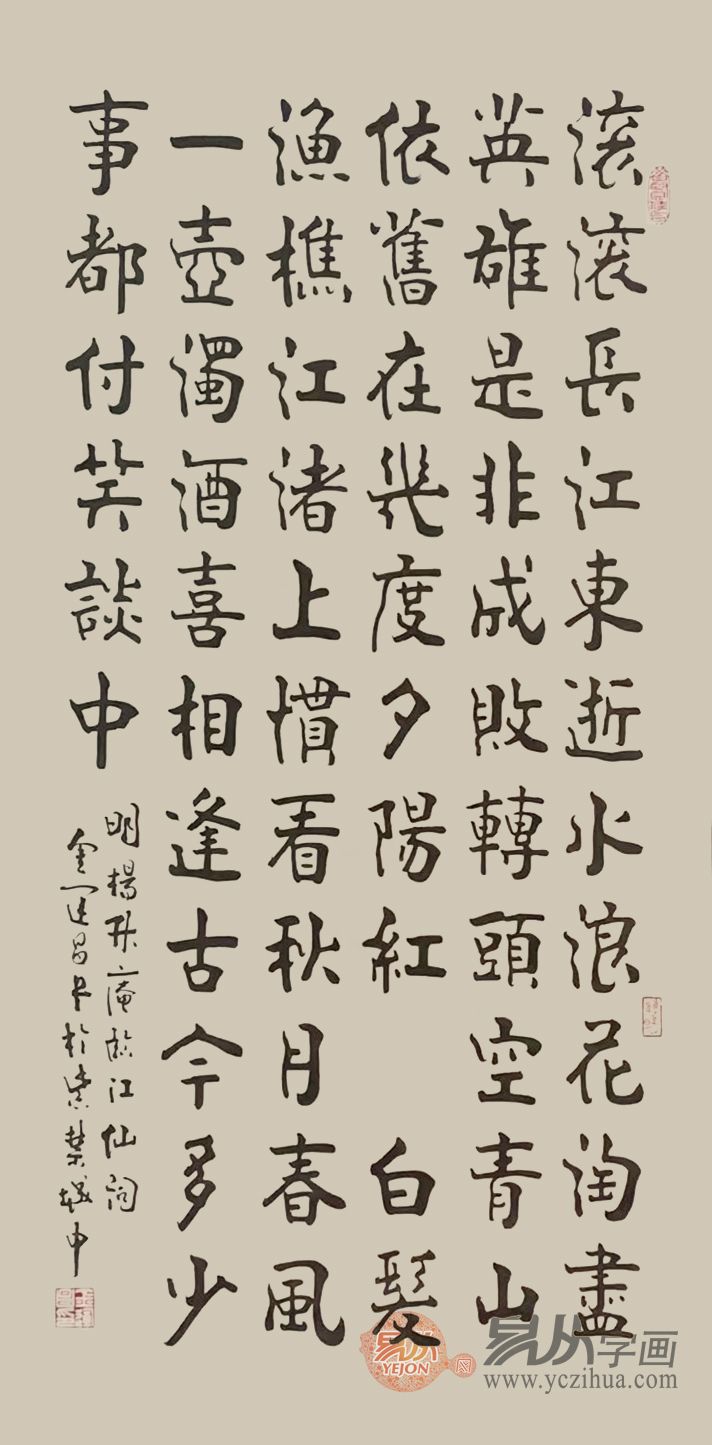 滚滚長江東逝水浪花淘盡
英雄是非成敗轉頭空青山
依舊在幾度夕陽紅 白髮
漁樵江渚上慣看秋月春風
一壺濁酒喜相逢古今多少
事都付笑談中
明楊升庵臨江仙詞
金運昌書於紫禁城中
易从
YEJON
易从字画
www.yczihua.com